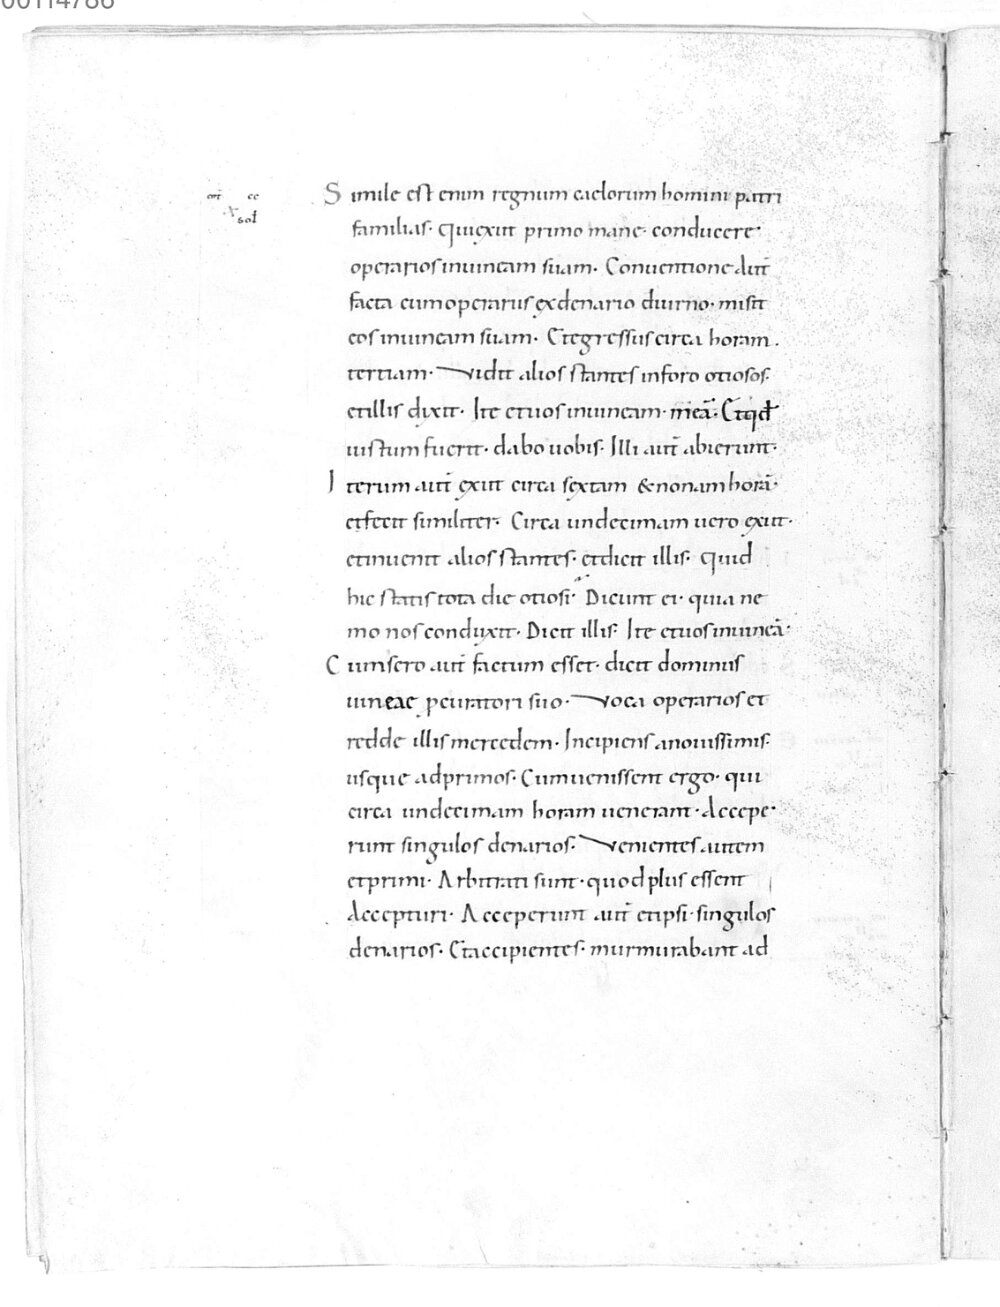 00114786
mt̄ cc
x
sol
Simile est enim regnum caelorum homini patri
familias· qui exiit primo mane· conducere·
operarios inuineam suam· Conuentione aut̄
facta cum operariis ex denario diurno· misit
eos inuineam suam· Et egressus circa horam·
tertiam· Vidit alios stantes inforo otiosos·
etillis dixit· Ite et uos inuineam· meā· Et qđ
iustum fuerit· dabo uobis· Illi aut̄ abierunt·
Iterum aut̄ exiit circa sextam &nonam horā·
etfecit similiter· Circa undecimam uero exiit·
etinuenit alios stantes· etdicit illis· quid
hic statis tota die otiosi· Dicunt ei· quia ne
mo nos conduxit· Dicit illis· Ite et uos inuineā·
Cum sero aut̄ factum esset· dicit dominus
uineae pcuratori suo· Voca operarios et
redde illis mercedem· Incipiens anouissimis·
usque adprimos· Cum uenissent ergo· qui
circa undecimam horam uenerant· Accepe·
runt singulos denarios· Venientes autem
etprimi· Arbitrati sunt· quod plus essent
Accepturi· Acceperunt aut̄ etipsi· singulos
denarios· Et accipientes· murmurabant ad